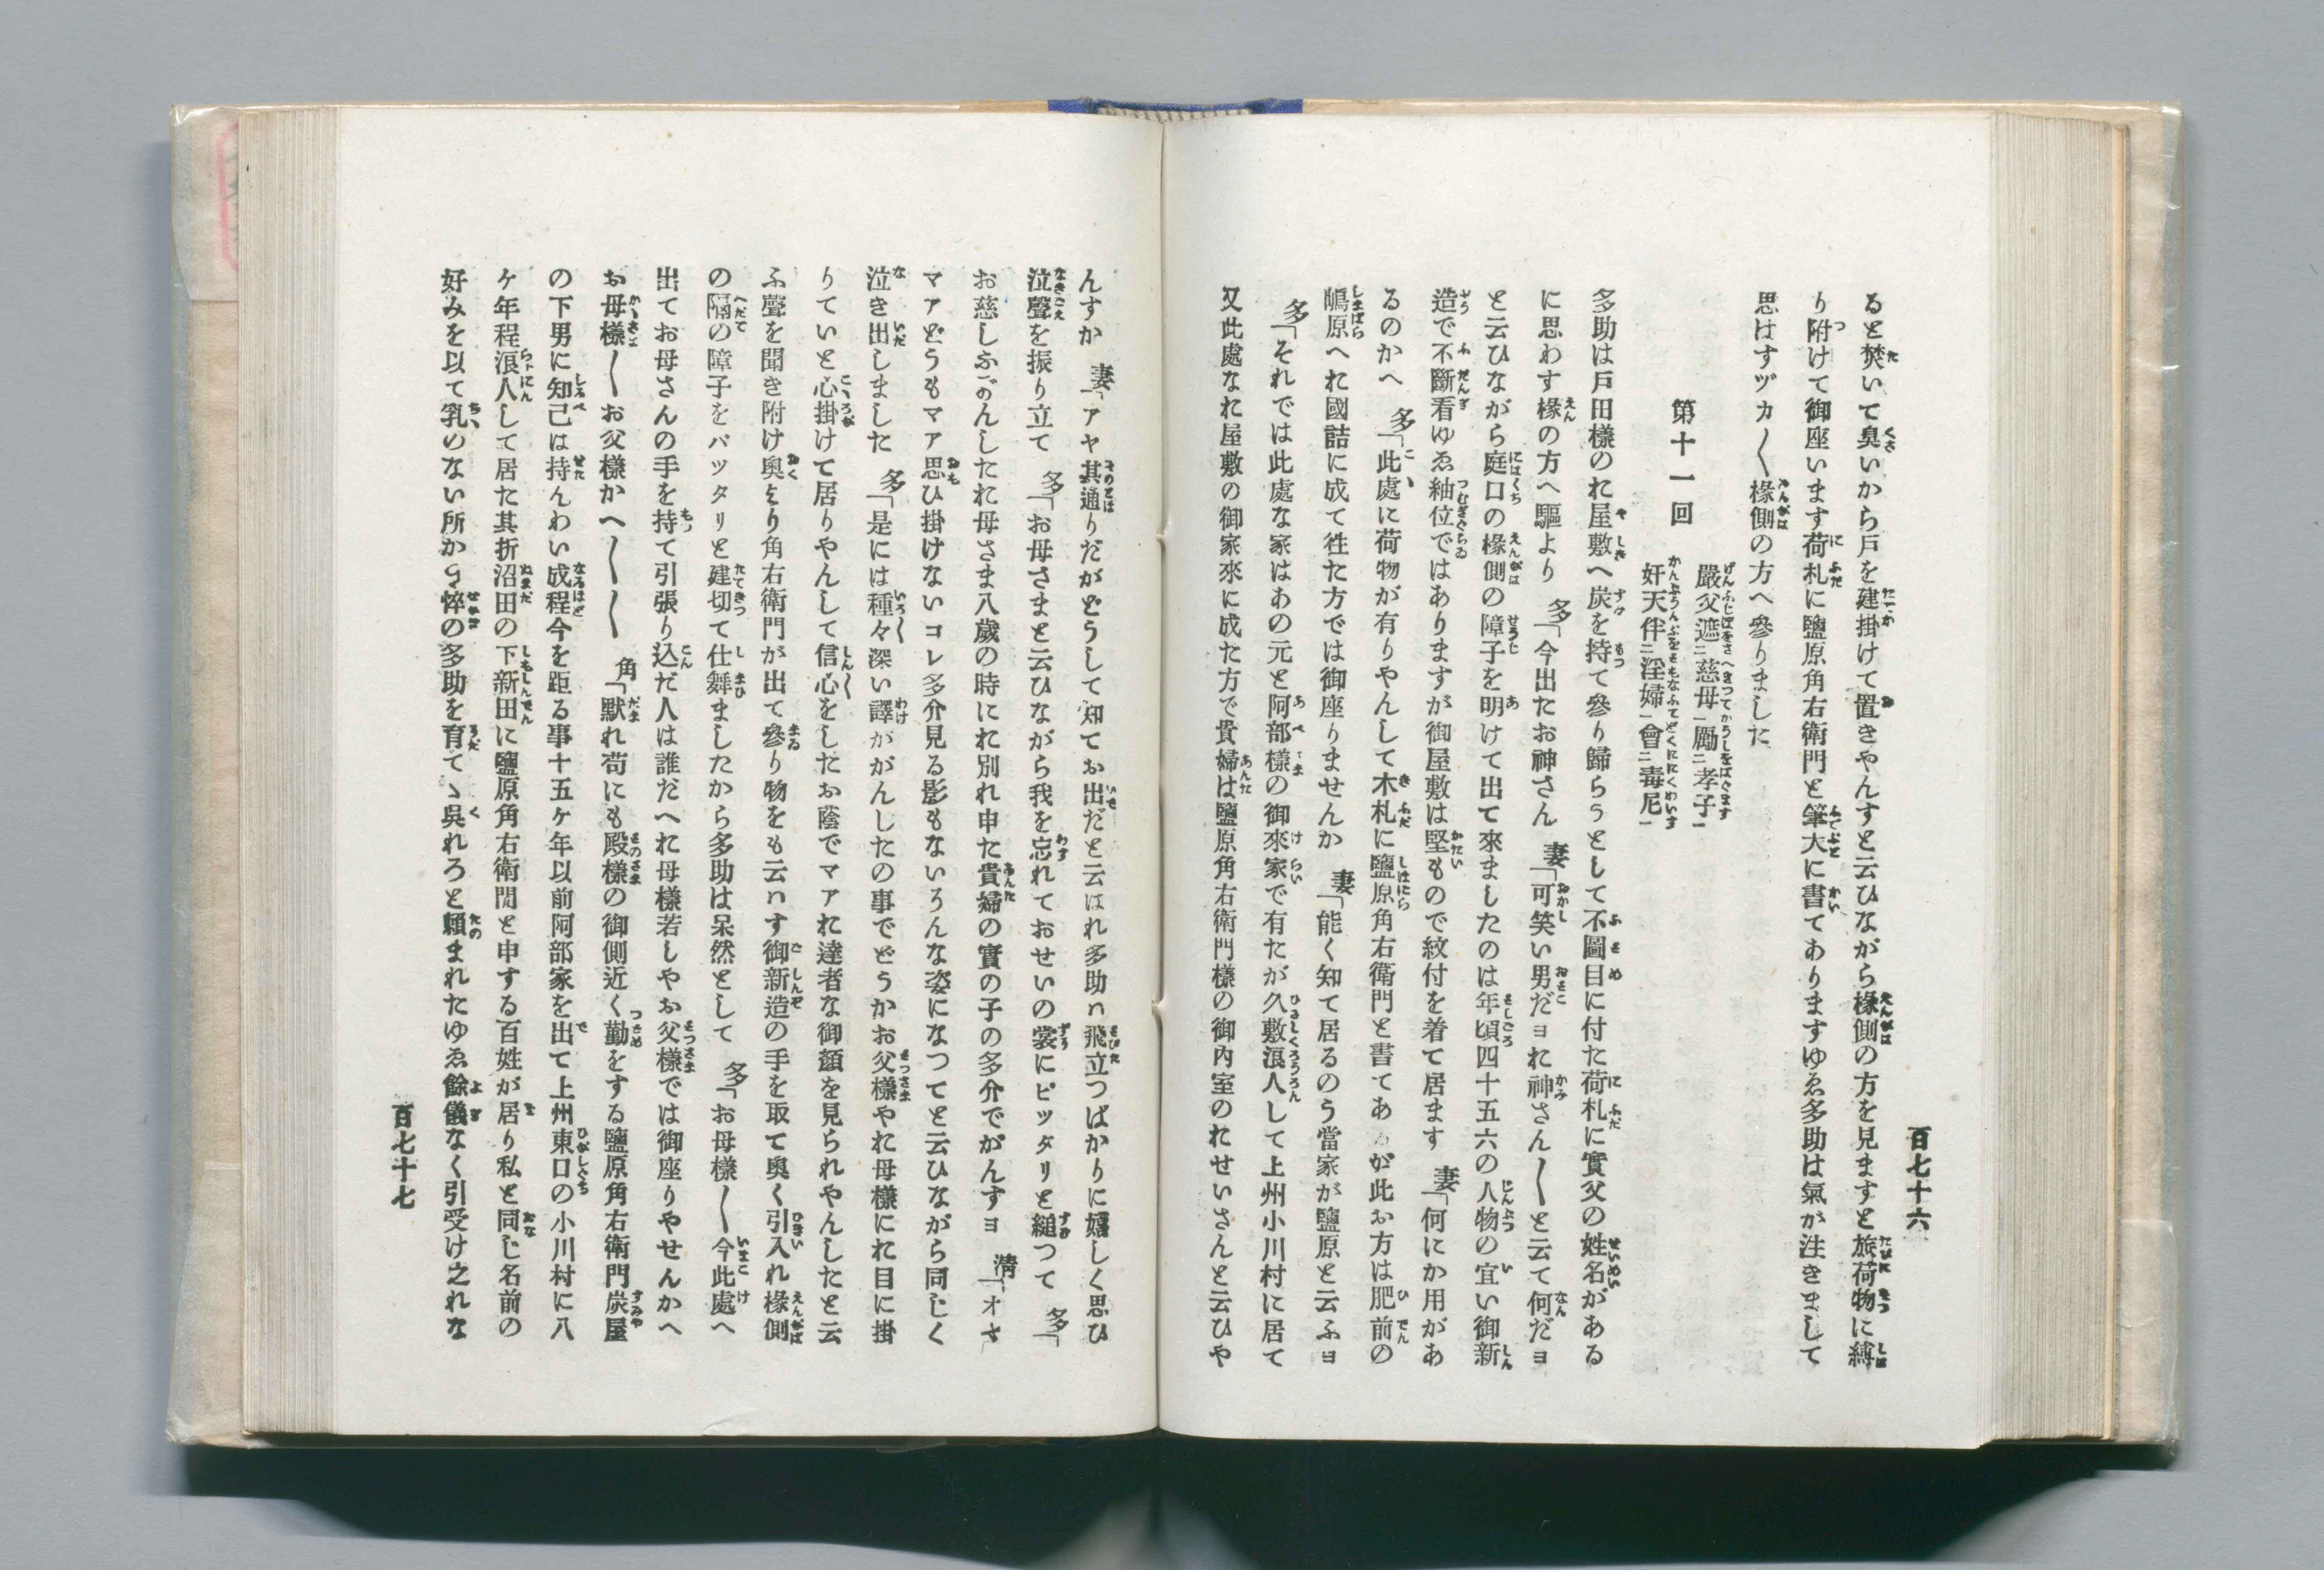 百七十六
ると焚いて臭いから戸を建掛けて置きやんすと云ひながら椽側の方を見ますと旅荷物に縛
り附けて御座います荷札に鹽原角右衛門と筆太に書てありますゆゑ多助は氣が注きまして
思はすヅカ〳〵椽側の方へ參りました
第十一回
嚴父遮ニ慈母一勵ニ孝子一
奸天伴ニ淫婦一會ニ毒尼一
多助は戸田樣のれ屋敷へ炭を持て參り歸らうとして不圖目に付た荷札に實父の姓名がある
に思わす椽の方へ驅より 多「今出たお神さん 妻「可笑い男だヨれ神さん〳〵と云て何だヨ
と云ひながら庭口の椽側の障子を明けて出て來ましたのは年頃四十五六の人物の宜い御新
造で不斷看ゆゑ紬位ではありますが御屋敷は堅もので紋付を着て居ます 妻「何にか用があ
るのかへ 多「此處に荷物が有りやんして木札に鹽原角右衛門と書てあるが此お方は肥前の
嶋原へれ國詰に成て徃た方では御座りませんか 妻「能く知て居るのう當家が鹽原と云ふヨ
多「それでは此處な家はあの元と阿部樣の御來家で有たが久敷浪人して上州小川村に居て
又此處なれ屋敷の御家來に成た方で貴婦は鹽原角右衛門樣の御內室のれせいさんと云ひや
んすか 妻「アヤ其通りだがどうして知てお出だと云はれ多助ハ飛立つばかりに嬉しく思ひ
泣聲を振り立て 多「お母さまと云ひながら我を忘れておせいの裳にピッタリと縋つて 多「
お慈しふごんしたれ母さま八歲の時にれ別れ申た貴婦の實の子の多介でがんすヨ 淸「オヤ
マアどうもマア思ひ掛けないコレ多介見る影もないろんな姿になつてと云ひながら同じく
泣き出しました 多「是には種々深い譯ががんしたの事でどうかお父樣やれ母樣にれ目に掛
りていと心掛けて居りやんして信心をしたお蔭でマアれ達者な御顏を見られやんしたと云
ふ聲を聞き附け奧より角右衛門が出て參り物をも云ハす御新造の手を取て奧く引入れ椽側
の隔の障子をバッタリと建切て仕舞ましたから多助は呆然として 多「お母樣〳〵今此處へ
出てお母さんの手を持て引張り込だ人は誰だへれ母樣若しやお父樣では御座りやせんかへ
お母樣〳〵お父樣かへ〳〵〳〵〳〵 角「默れ苟にも殿樣の御側近く勤をする鹽原角右衛門炭屋
の下男に知己は持んわい成程今を距る事十五ヶ年以前阿部家を出て上州東口の小川村に八
ヶ年程浪人して居た其折沼田の下新田に鹽原角右衛門と申する百姓が居り私と同じ名前の
好みを以て乳のない所から悴の多助を育てゝ吳れろと賴まれたゆゑ餘儀なく引受け之れな
百七十七